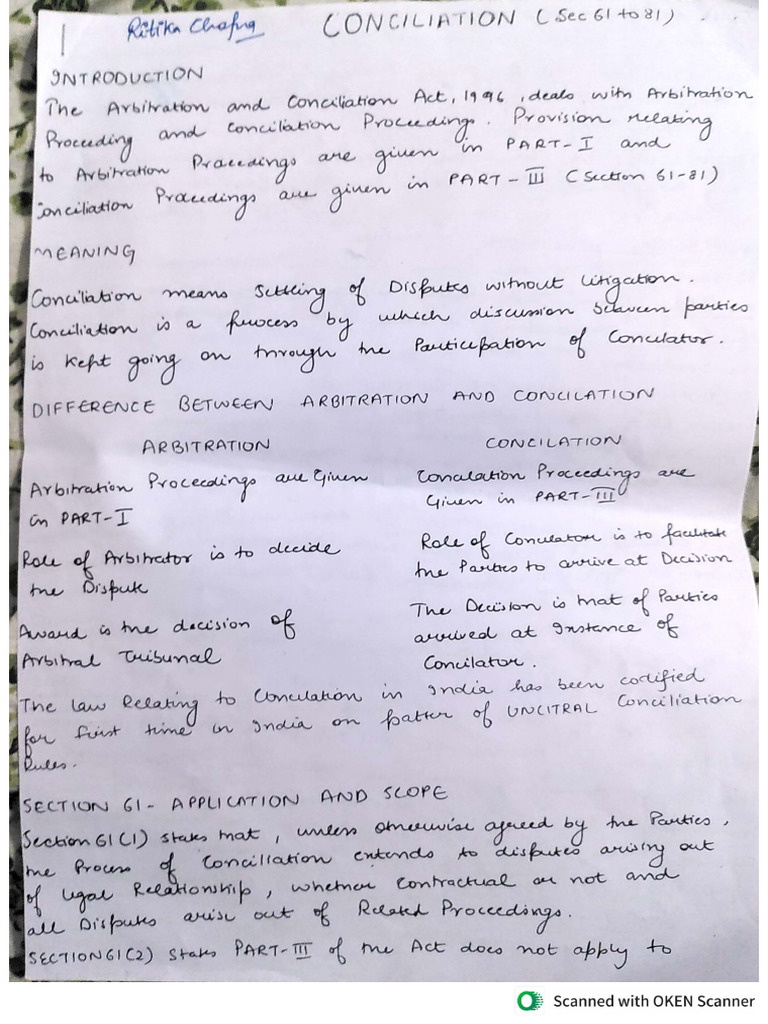 Ritika Chopra CONCILIATION (Sec 61 to 81)
INTRODUCTION
The Arbitration and Conciliation Act, 1996, deals with Arbitration
Proceeding and Conciliation Proceedings. Provision relating
to Arbitration Proceedings are given in PART-I and
Conciliation Proceedings are given in PART-III (Section 61-81)
MEANING
Conciliation means Settling of Disputes without litigation.
Conciliation is a process by which discussion between parties
is kept going on through the Participation of Concilator.
DIFFERENCE BETWEEN ARBITRATION AND CONCILATION
ARBITRATION CONCILATION
Arbitration Proceedings are Given Concilation Proceedings are
in PART-I Given in PART-III
Role of Arbitrator is to decide Role of Concilator is to facilitate
the Dispute the Parties to arrive at Decision
Award is the decision of The Decision is that of Parties
Arbitral Tribunal arrived at Instance of
Concilator.
The law Relating to Concilation in India has been codified
for first time in India on patter of UNCITRAL Conciliation
Rules.
SECTION 61 - APPLICATION AND SCOPE
Section 61(1) states that, unless otherwise agreed by the Parties,
the Process of Conciliation extends to disputes arising out
of legal Relationship, whether contractual or not and
all Disputes arise out of Related Proceedings.
SECTION 61(2) States PART-III of the Act does not apply to
Scanned with OKEN Scanner